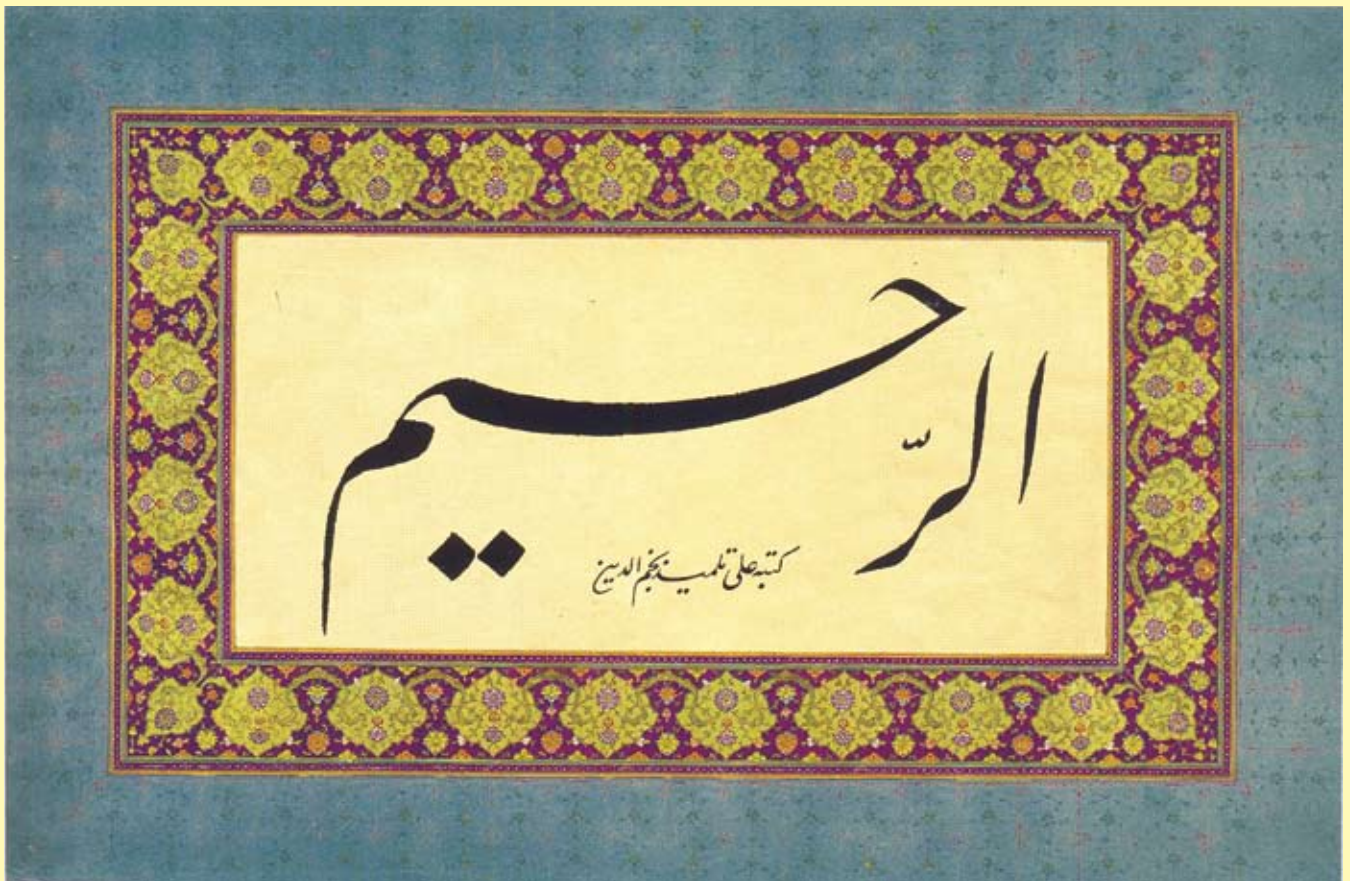 الرّحيم
كتبه علی تلميذ نجم الدين